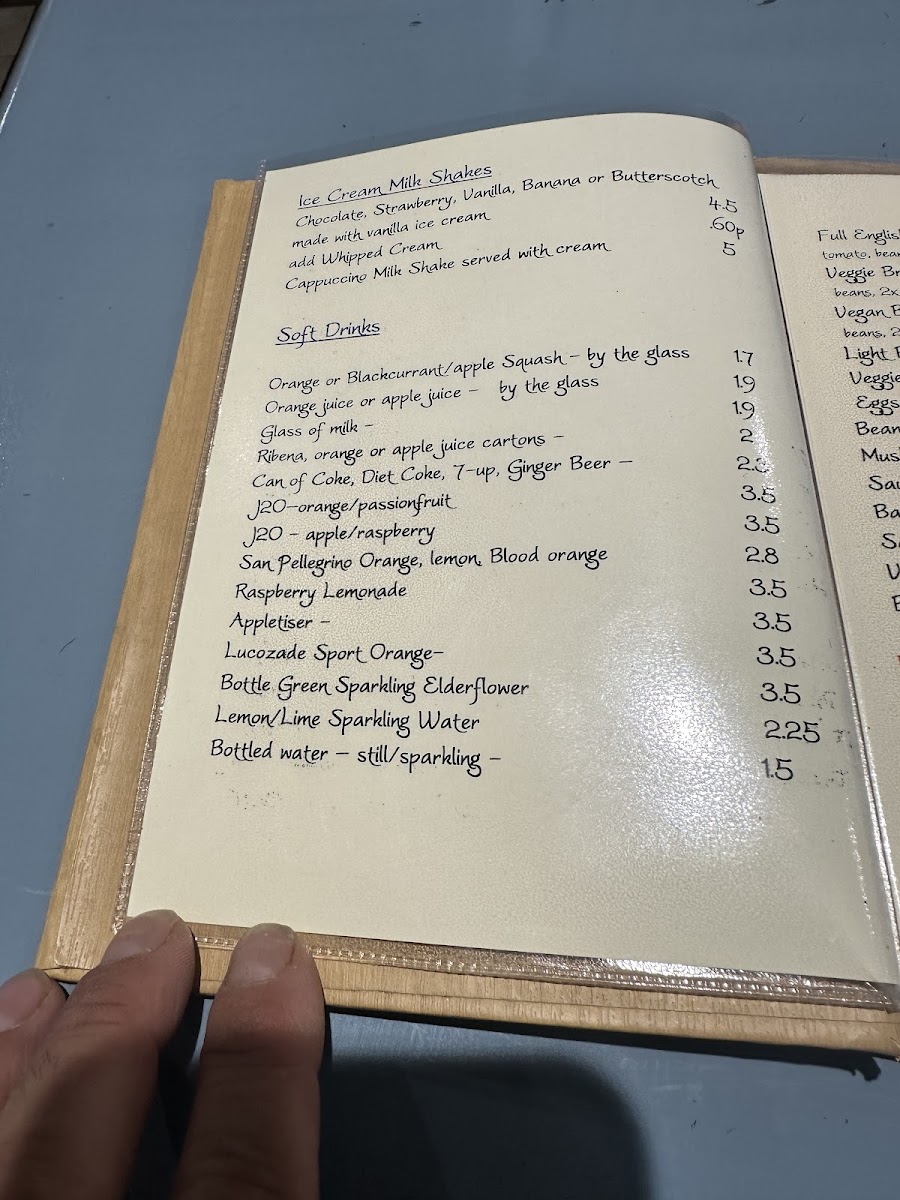 Ice Cream Milk Shakes
Chocolate, Strawberry, Vanilla, Banana or Butterscotch
made with vanilla ice cream 4.5
add Whipped Cream .60p
Cappuccino Milk Shake served with cream 5
Soft Drinks
Orange or Blackcurrant/apple Squash - by the glass 1.7
Orange juice or apple juice - by the glass 1.9
Glass of milk - 1.9
Ribena, orange or apple juice cartons - 2
Can of Coke, Diet Coke, 7-up, Ginger Beer -
J2O-orange/passionfruit 3.5
J2O - apple/raspberry 3.5
San Pellegrino Orange, lemon, Blood orange 2.8
Raspberry Lemonade 3.5
Appletiser - 3.5
Lucozade Sport Orange- 3.5
Bottle Green Sparkling Elderflower 3.5
Lemon/Lime Sparkling Water 2.25
Bottled water - still/sparkling - 1.5
Full
tomato,
Veggie
beans, 2x
Vegan
beans,
Light
Veggie
Eggs